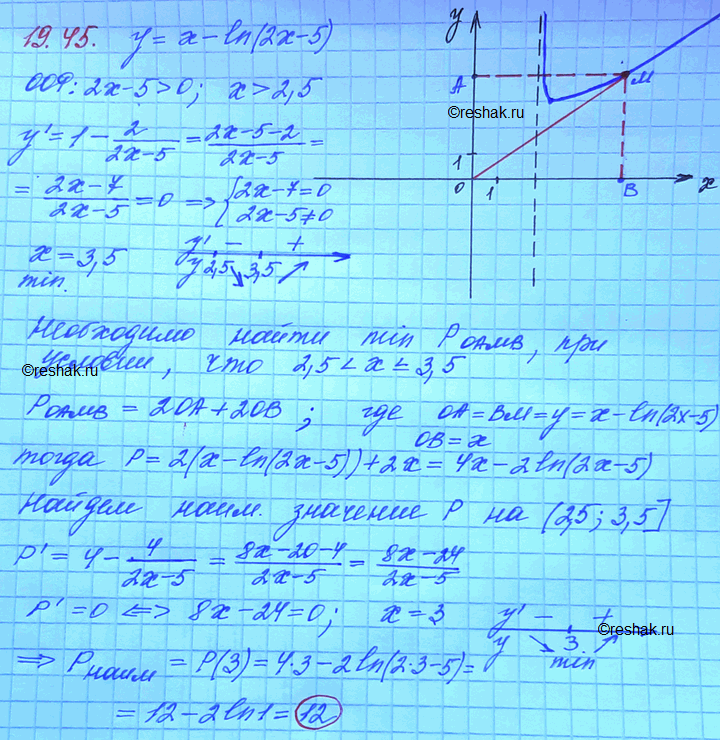 19.45. y = x - ln(2x-5)
ООФ: 2x-5>0; x>2,5
y' = 1 - 2/(2x-5) = (2x-5-2)/(2x-5) =
= (2x-7)/(2x-5) = 0 => { 2x-7=0 2x-5≠0
x = 3,5
min.
y' - +
y 2,5 ↘ 3,5 ↗
y
A
M
©reshak.ru
1
0 1 B x
Необходимо найти min P OAMB, при
условии, что 2,5 < x ≤ 3,5
©reshak.ru
P OAMB = 2OA + 2OB ; где OA = BM = y = x - ln(2x-5)
OB = x
тогда P = 2(x - ln(2x-5)) + 2x = 4x - 2ln(2x-5)
Найдем наим. значение P на (2,5; 3,5]
P' = 4 - 4/(2x-5) = (8x-20-4)/(2x-5) = (8x-24)/(2x-5)
P' = 0 <=> 8x-24=0; x = 3
y' - +
©reshak.ru
y ↘ 3 ↗
min
=> P наим = P(3) = 4·3 - 2ln(2·3-5) =
= 12 - 2ln1 = 12